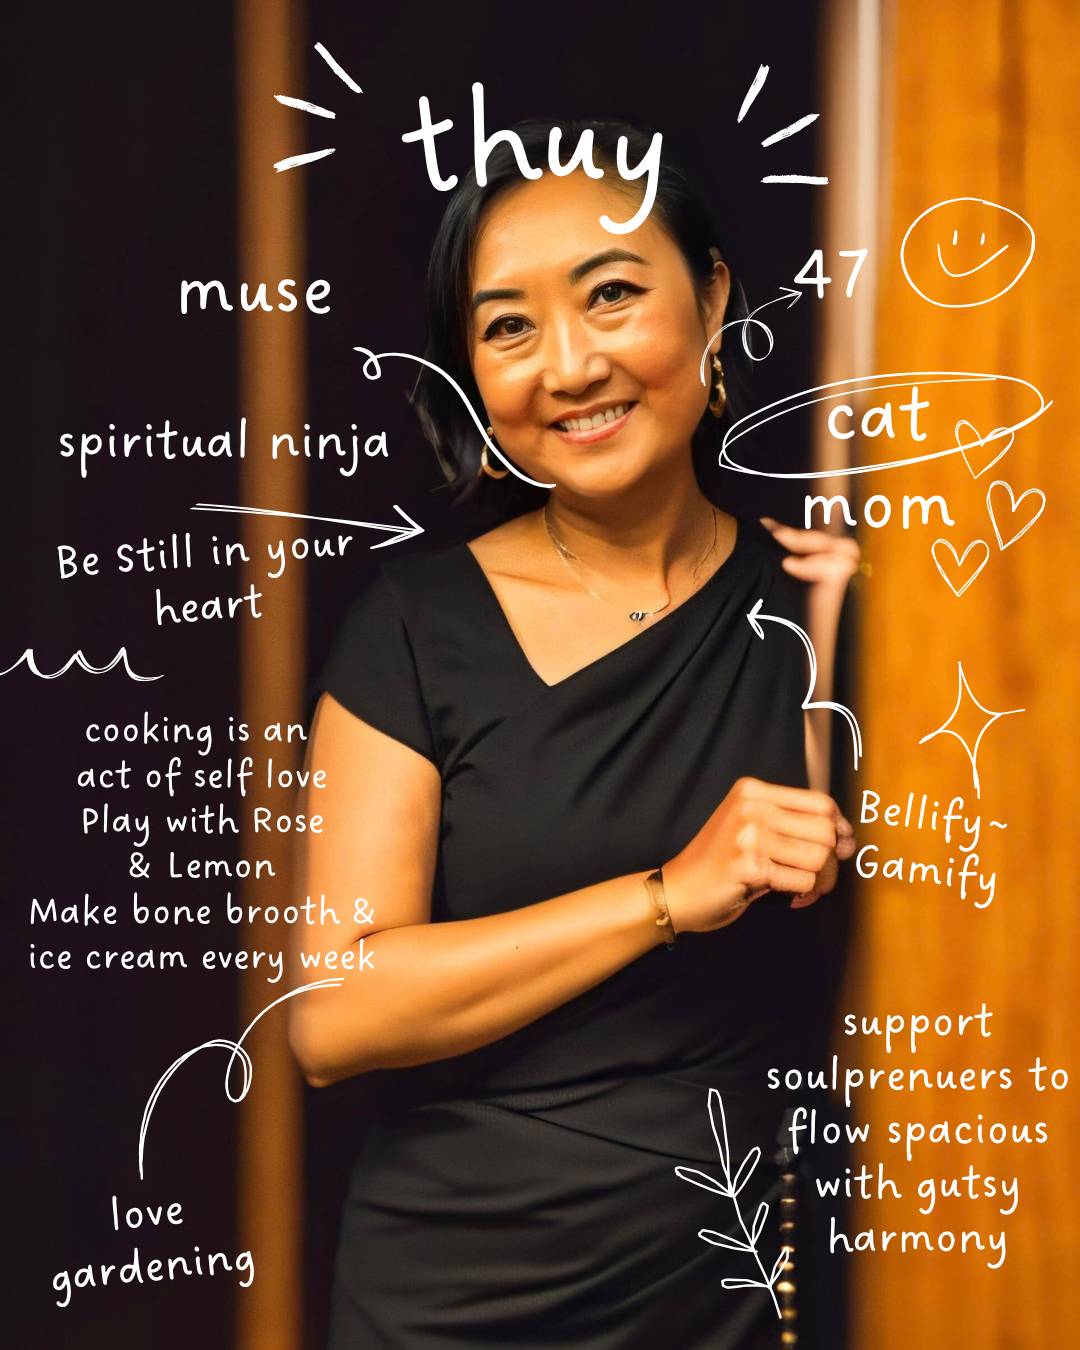 thuy
muse
47
cat
mom
spiritual ninja
Be Still in your
heart
cooking is an
act of self love
Play with Rose
& Lemon
Make bone brooth &
ice cream every week
Bellify~
Gamify
support
soulprenuers to
flow spacious
with gutsy
harmony
love
gardening